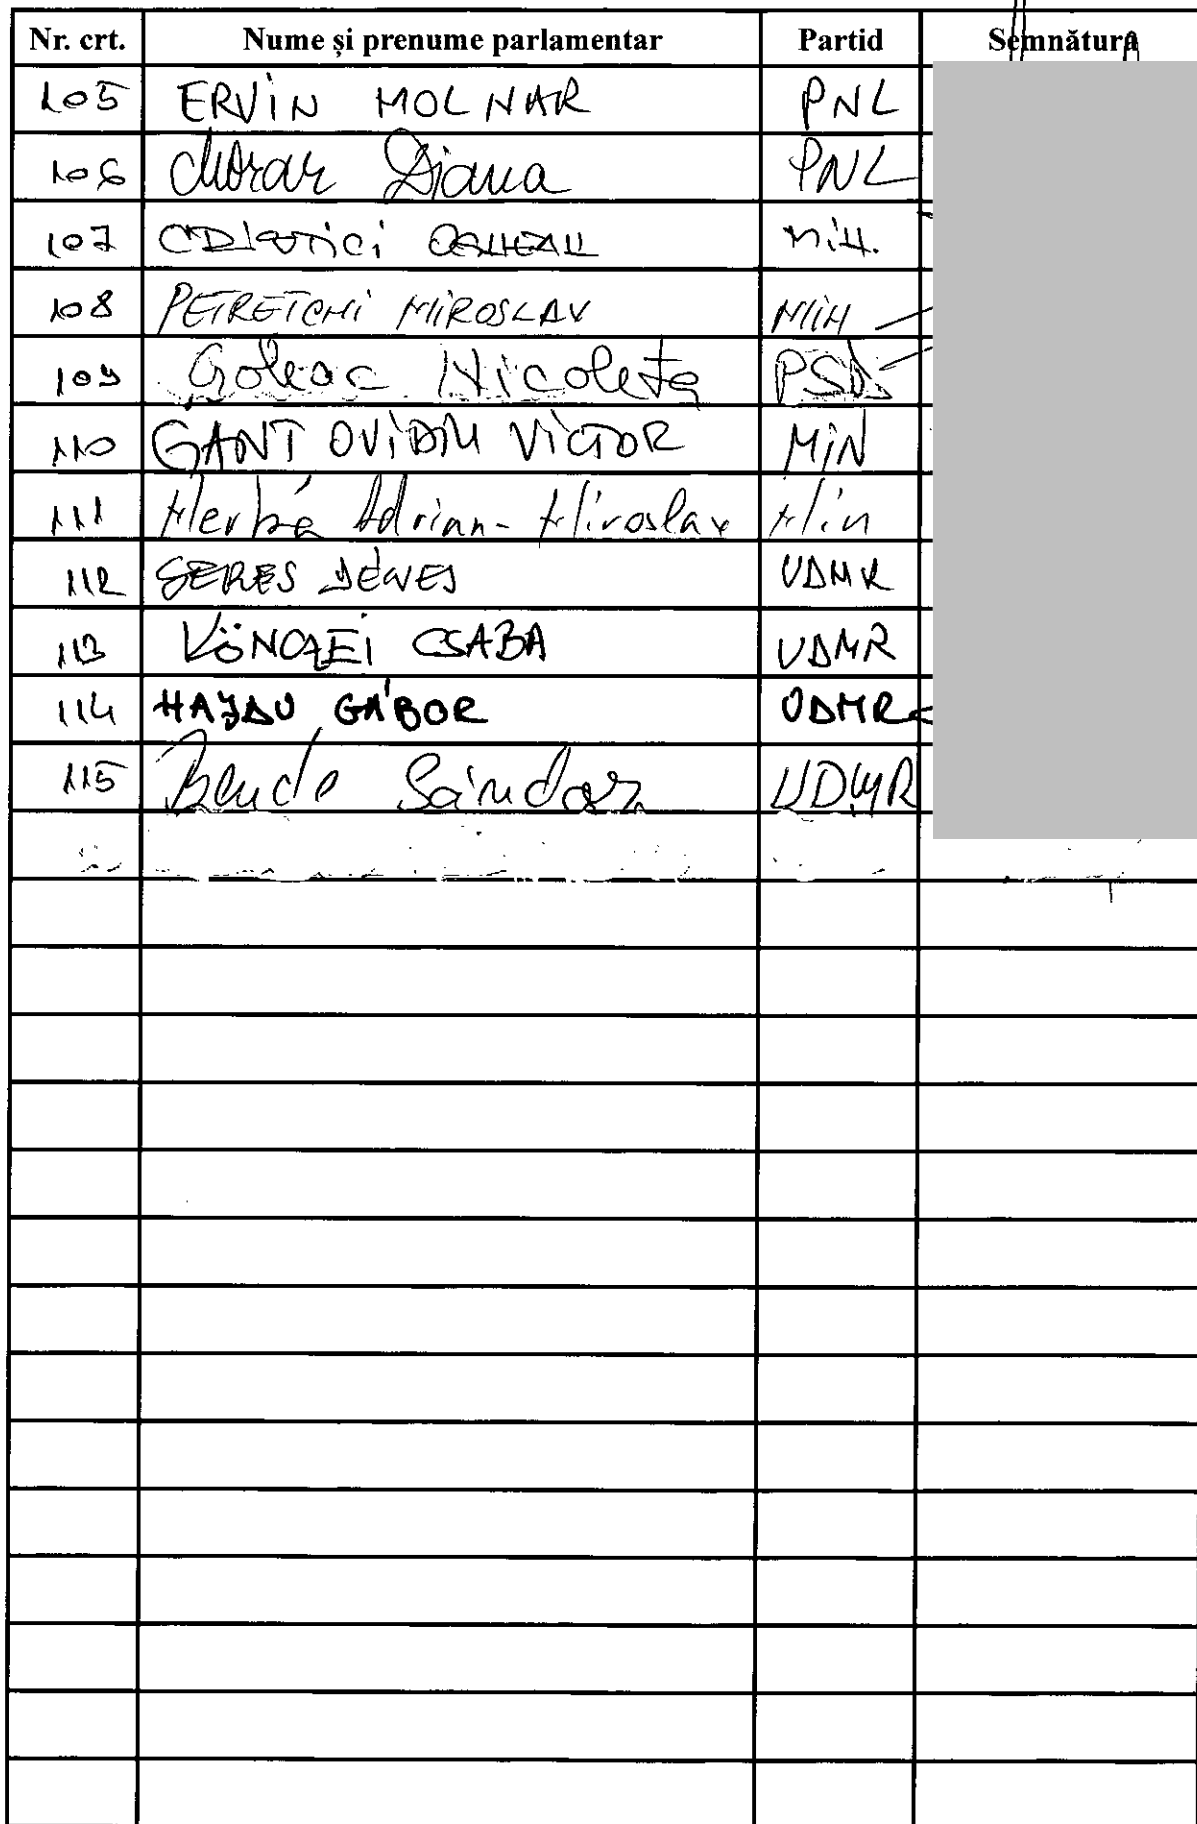 Nr. crt. Nume și prenume parlamentar Partid Semnătură
105 ERVIN MOLNAR PNL
106 Morar Diana PNL
107 MIN.
108 PETRETCHI MIROSLAV MIN
109 Goleac Nicoleta PSD
110 GANT OVIDIU VICTOR MIN
111 Merka Adrian-Miroslav Min
112 SERES DÉNES UDMR
113 KÖNCZEI CSABA UDMR
114 HAJDU GÁBOR UDMR
115 Bende Sándor UDMR